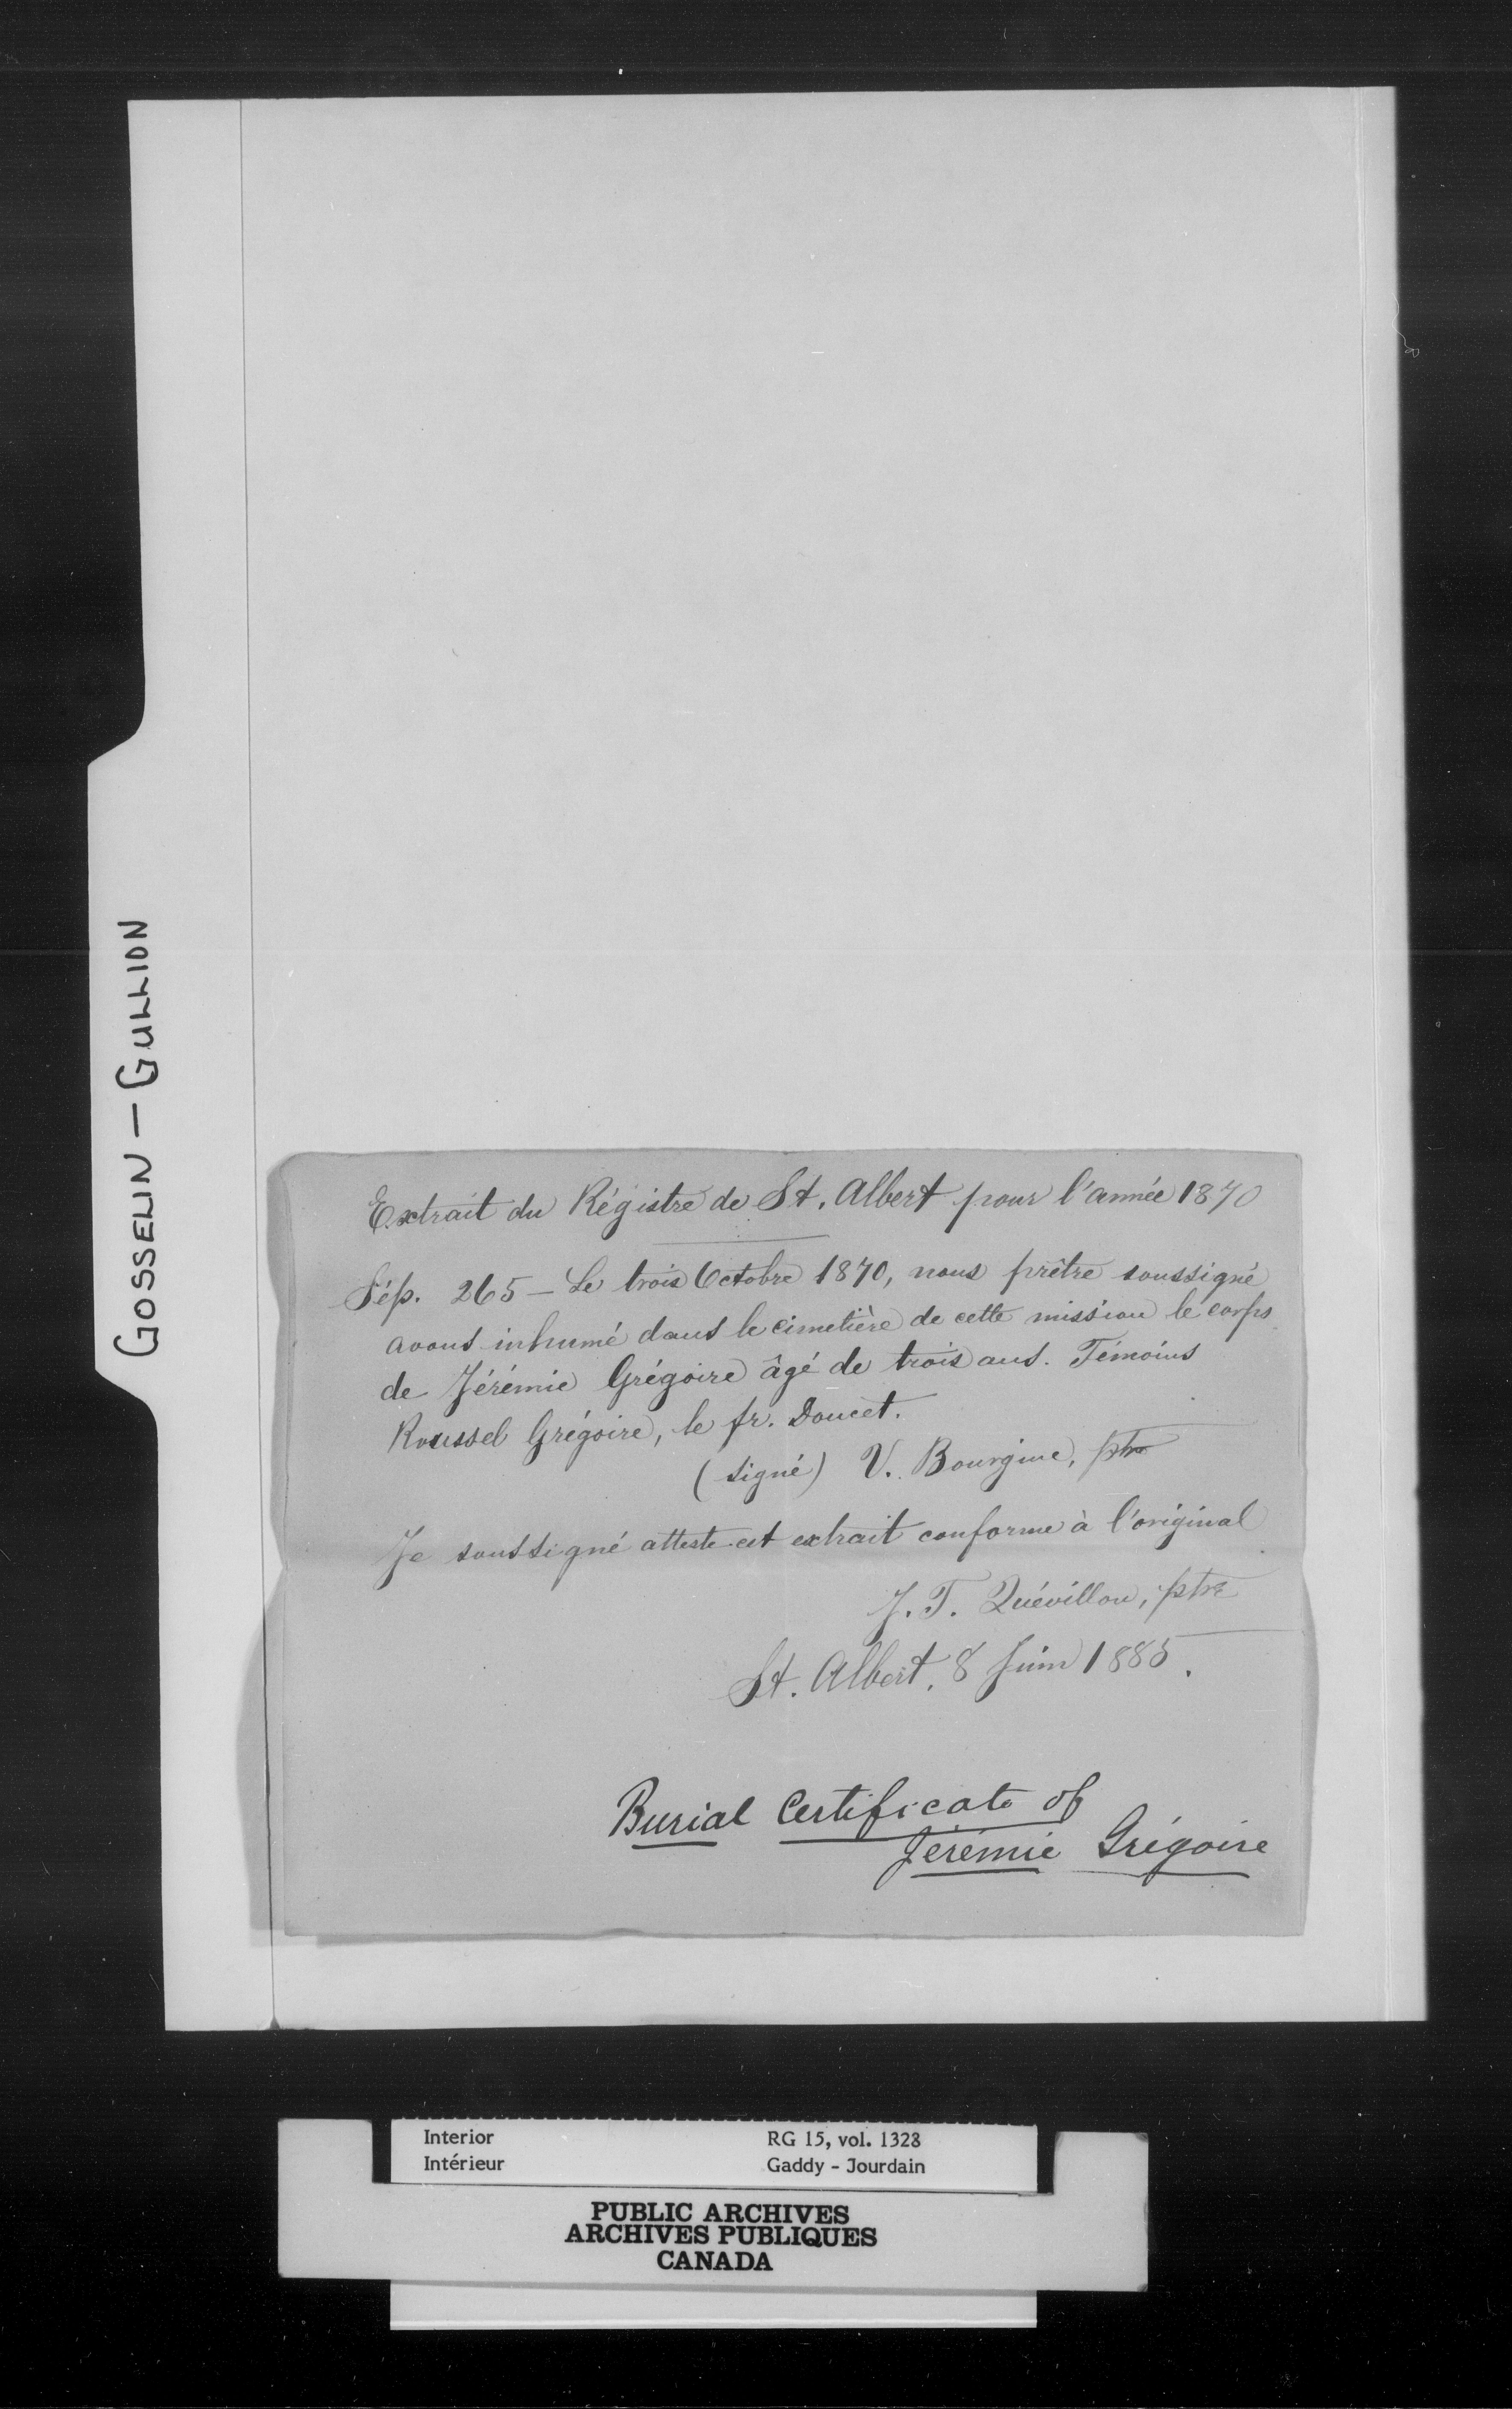 GOSSELIN — GULLION
Extrait du Régistre de St. Albert pour l'année 1870
Sép. 265 — Le trois Octobre 1870, nous prêtre soussigné
avons inhumé dans le cimetière de cette mission le corps
de Jérémie Grégoire âgé de trois ans. Témoins
Roussel Grégoire, le fr. Doucet.
(signé) V. Bourgine, ptre
Je soussigné atteste cet extrait conforme à l'original
J. T. Quévillon, ptre
St. Albert, 8 Juin 1885.
Burial Certificate of
Jérémie Grégoire
Interior RG 15, vol. 1328
Intérieur Gaddy - Jourdain
PUBLIC ARCHIVES
ARCHIVES PUBLIQUES
CANADA